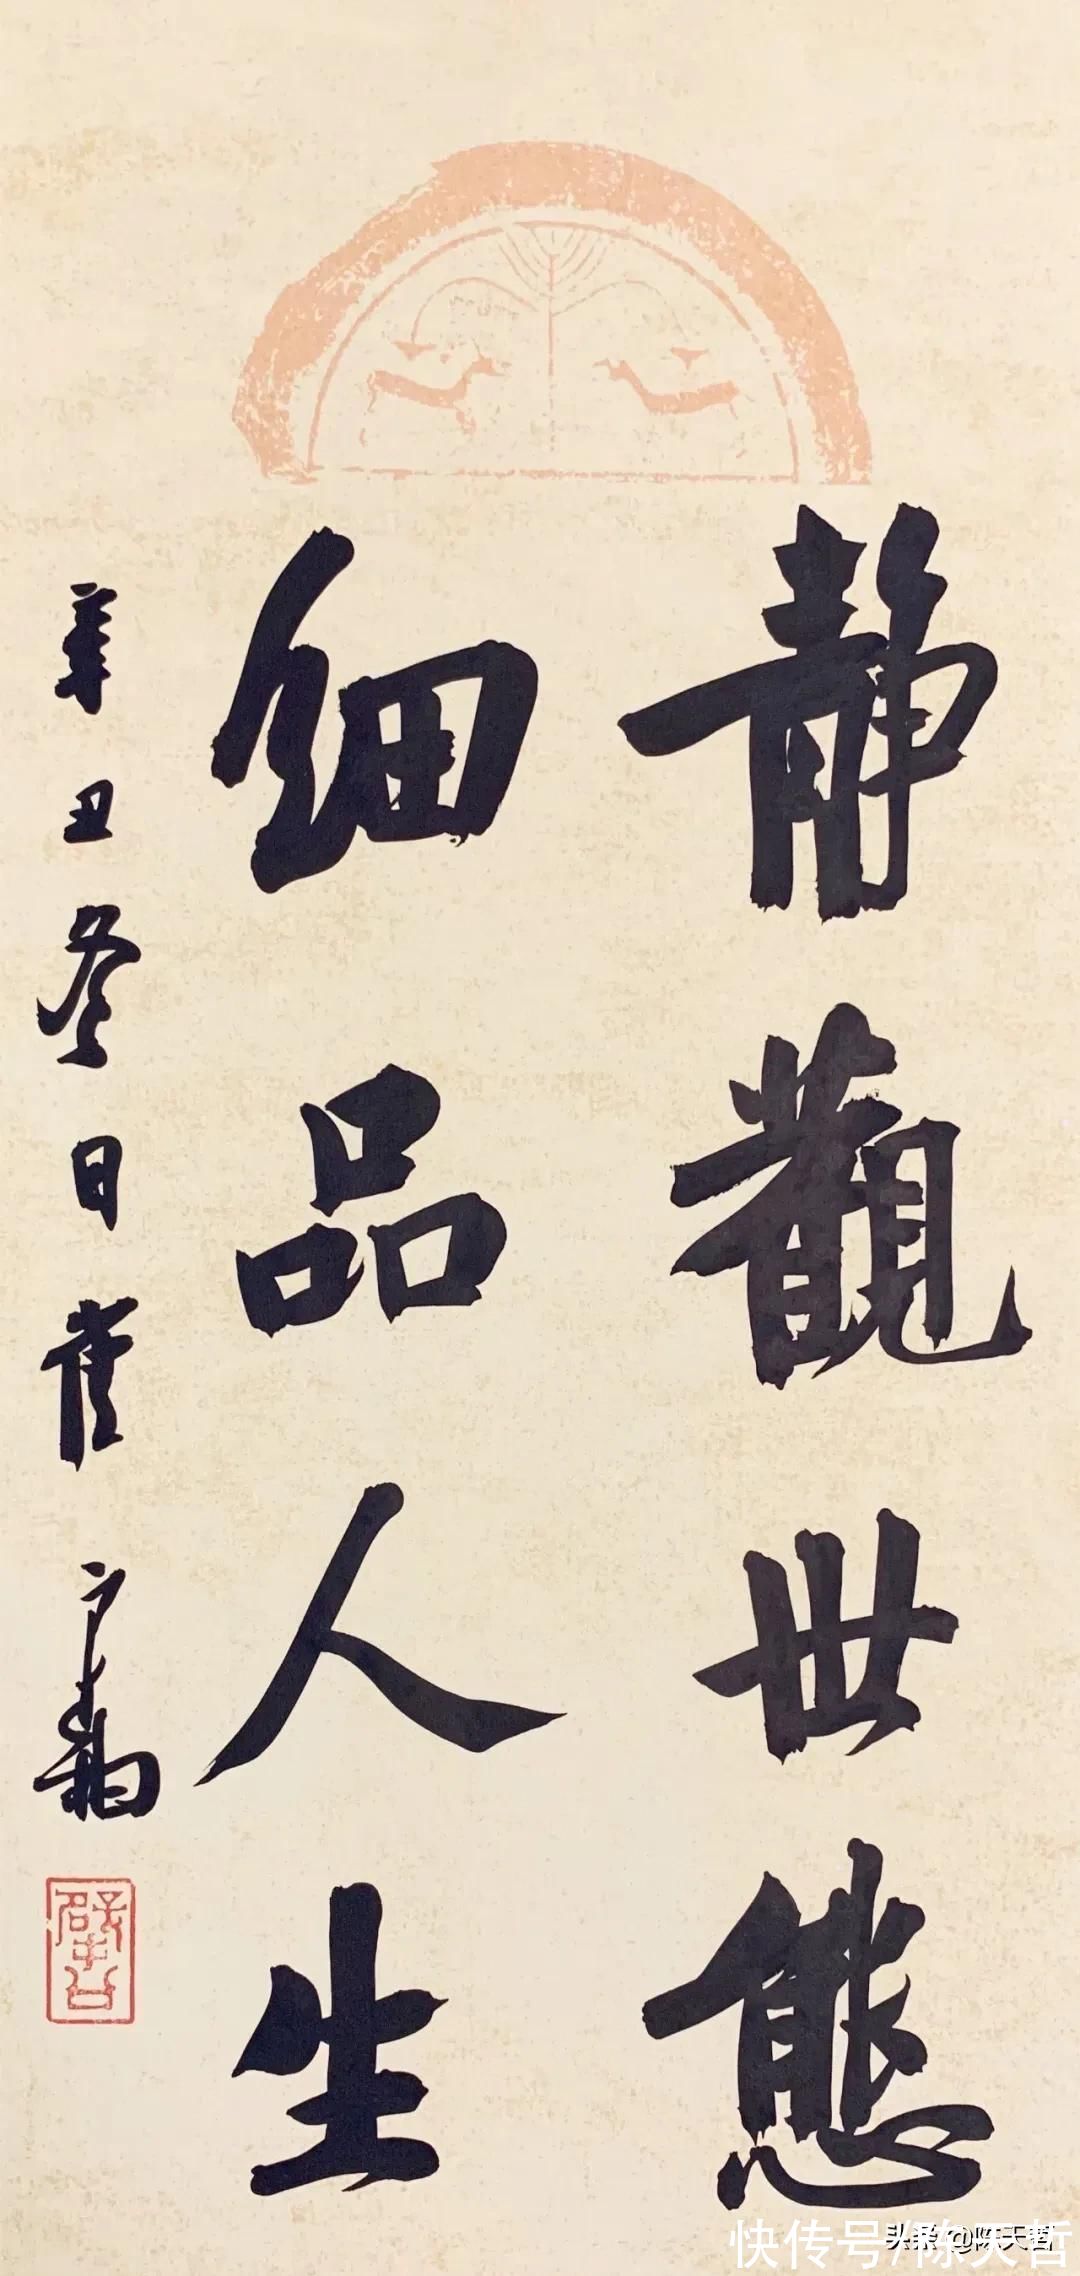 静觀世態
細品人生
辛丑冬日崔寒柏
快传号/陈天哲
头条 @陈天哲